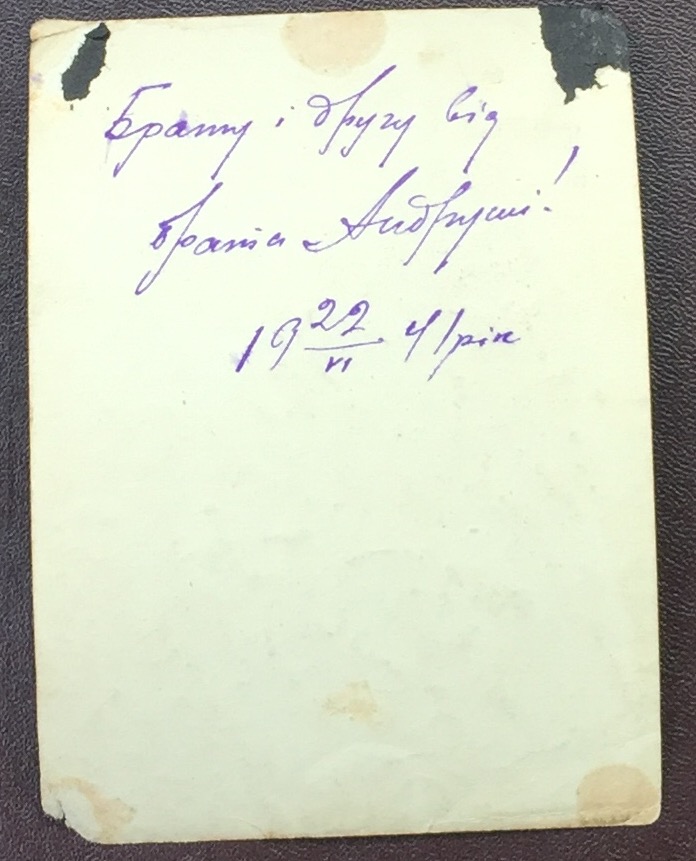 Брату і другу від
брата Андруші!
19 22/VI 41 рік